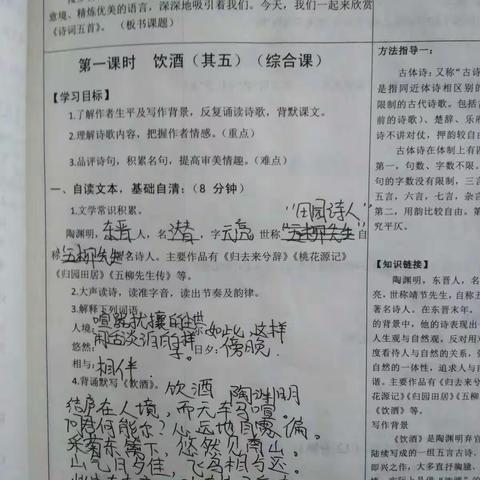 意境、精炼优美的语言，深深地吸引着我们。今天，我们一起来欣赏
《诗词五首》。（板书课题）
第一课时 饮酒（其五）（综合课）
【学习目标】
1.了解作者生平及写作背景，反复诵读诗歌，背默课文。
2.理解诗歌内容，把握作者情感。（重点）
3.品评诗句，积累名句，提高审美情趣。（难点）
一、自读文本，基础自清：（8 分钟）
1.文学常识积累。
"田园诗人"
陶渊明，东晋人，名潜，字元亮，世称"五柳先生"自
称五柳先生 名诗人。主要作品有《归去来兮辞》《桃花源记》
《归园田居》《五柳先生传》等。
2.大声读诗，读准字音，读出节奏及韵律。
3.解释下列词语。
人境：喧嚣扰攘的尘世 如此，这样
悠然：闲适淡泊的样子。 日夕：傍晚。
相与：相伴
4.背诵默写《饮酒》。
饮酒 陶渊明
结庐在人境，而无车马喧。
问君何能尔？心远地自偏。
采菊东篱下，悠然见南山。
山气日夕佳，飞鸟相与还。
方法指导一：
古体诗：又称"古诗
是指同近体诗相区别的
限制的古代诗歌。包括
前的诗歌）、楚辞、乐府
诗不讲对仗，押韵较自由
古体诗在体制上有四
第一，句数、字数不限。
句的字数没有限制，三言
五言，六言，七言，杂言
第二，用韵比较自由。第
究平仄。
【知识链接】
陶渊明，东晋人，名
亮，世称靖节先生，自称五
著名诗人。在东晋末年，
的背景中，他的诗表现出
人生观与自然观，反对用对
度看待人与自然的关系，强
自然的一体性，追求人与自
谐。主要作品有《归去来兮
花源记》《归园田居》《五柳
《饮酒》等。
写作背景
《饮酒》是陶渊明弃官
陆续写成的一组五言古诗。
即兴之作，大多直抒胸臆，